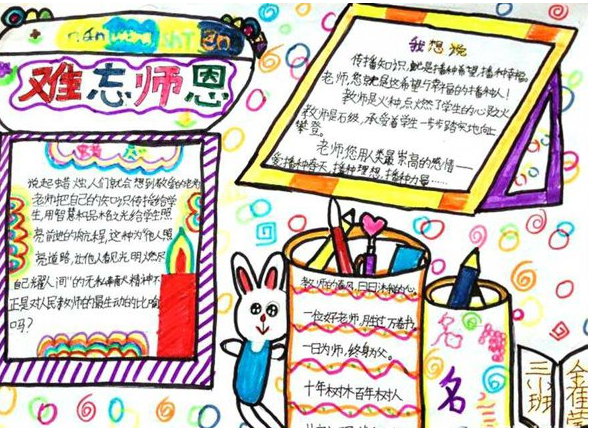 nán wàng shī ēn
难忘师恩
我想说
传播知识,就是播种希望,播种幸福。
老师,您就是这希望与幸福的播种人!
教师是火种,点燃了学生的心灵之火
教师是石级,承受着学生一步步踏实地向上
攀登。
老师您用人类最崇高的感情——
爱,播种春天,播种理想,播种力量……
说起蜡烛,人们就会想到敬爱的老师
老师把自己的知识传播给学
生,用智慧和品格之光给学生照
亮前进的航程,这种为他人照
亮道路,让他人看见光明,"燃尽
自己耀人间"的无私精神不
正是对人民教师的最生动的比喻
吗?
一位好老师,胜过万卷书
一日为师,终身为父。
十年树木百年树人
名
名
三(1)班